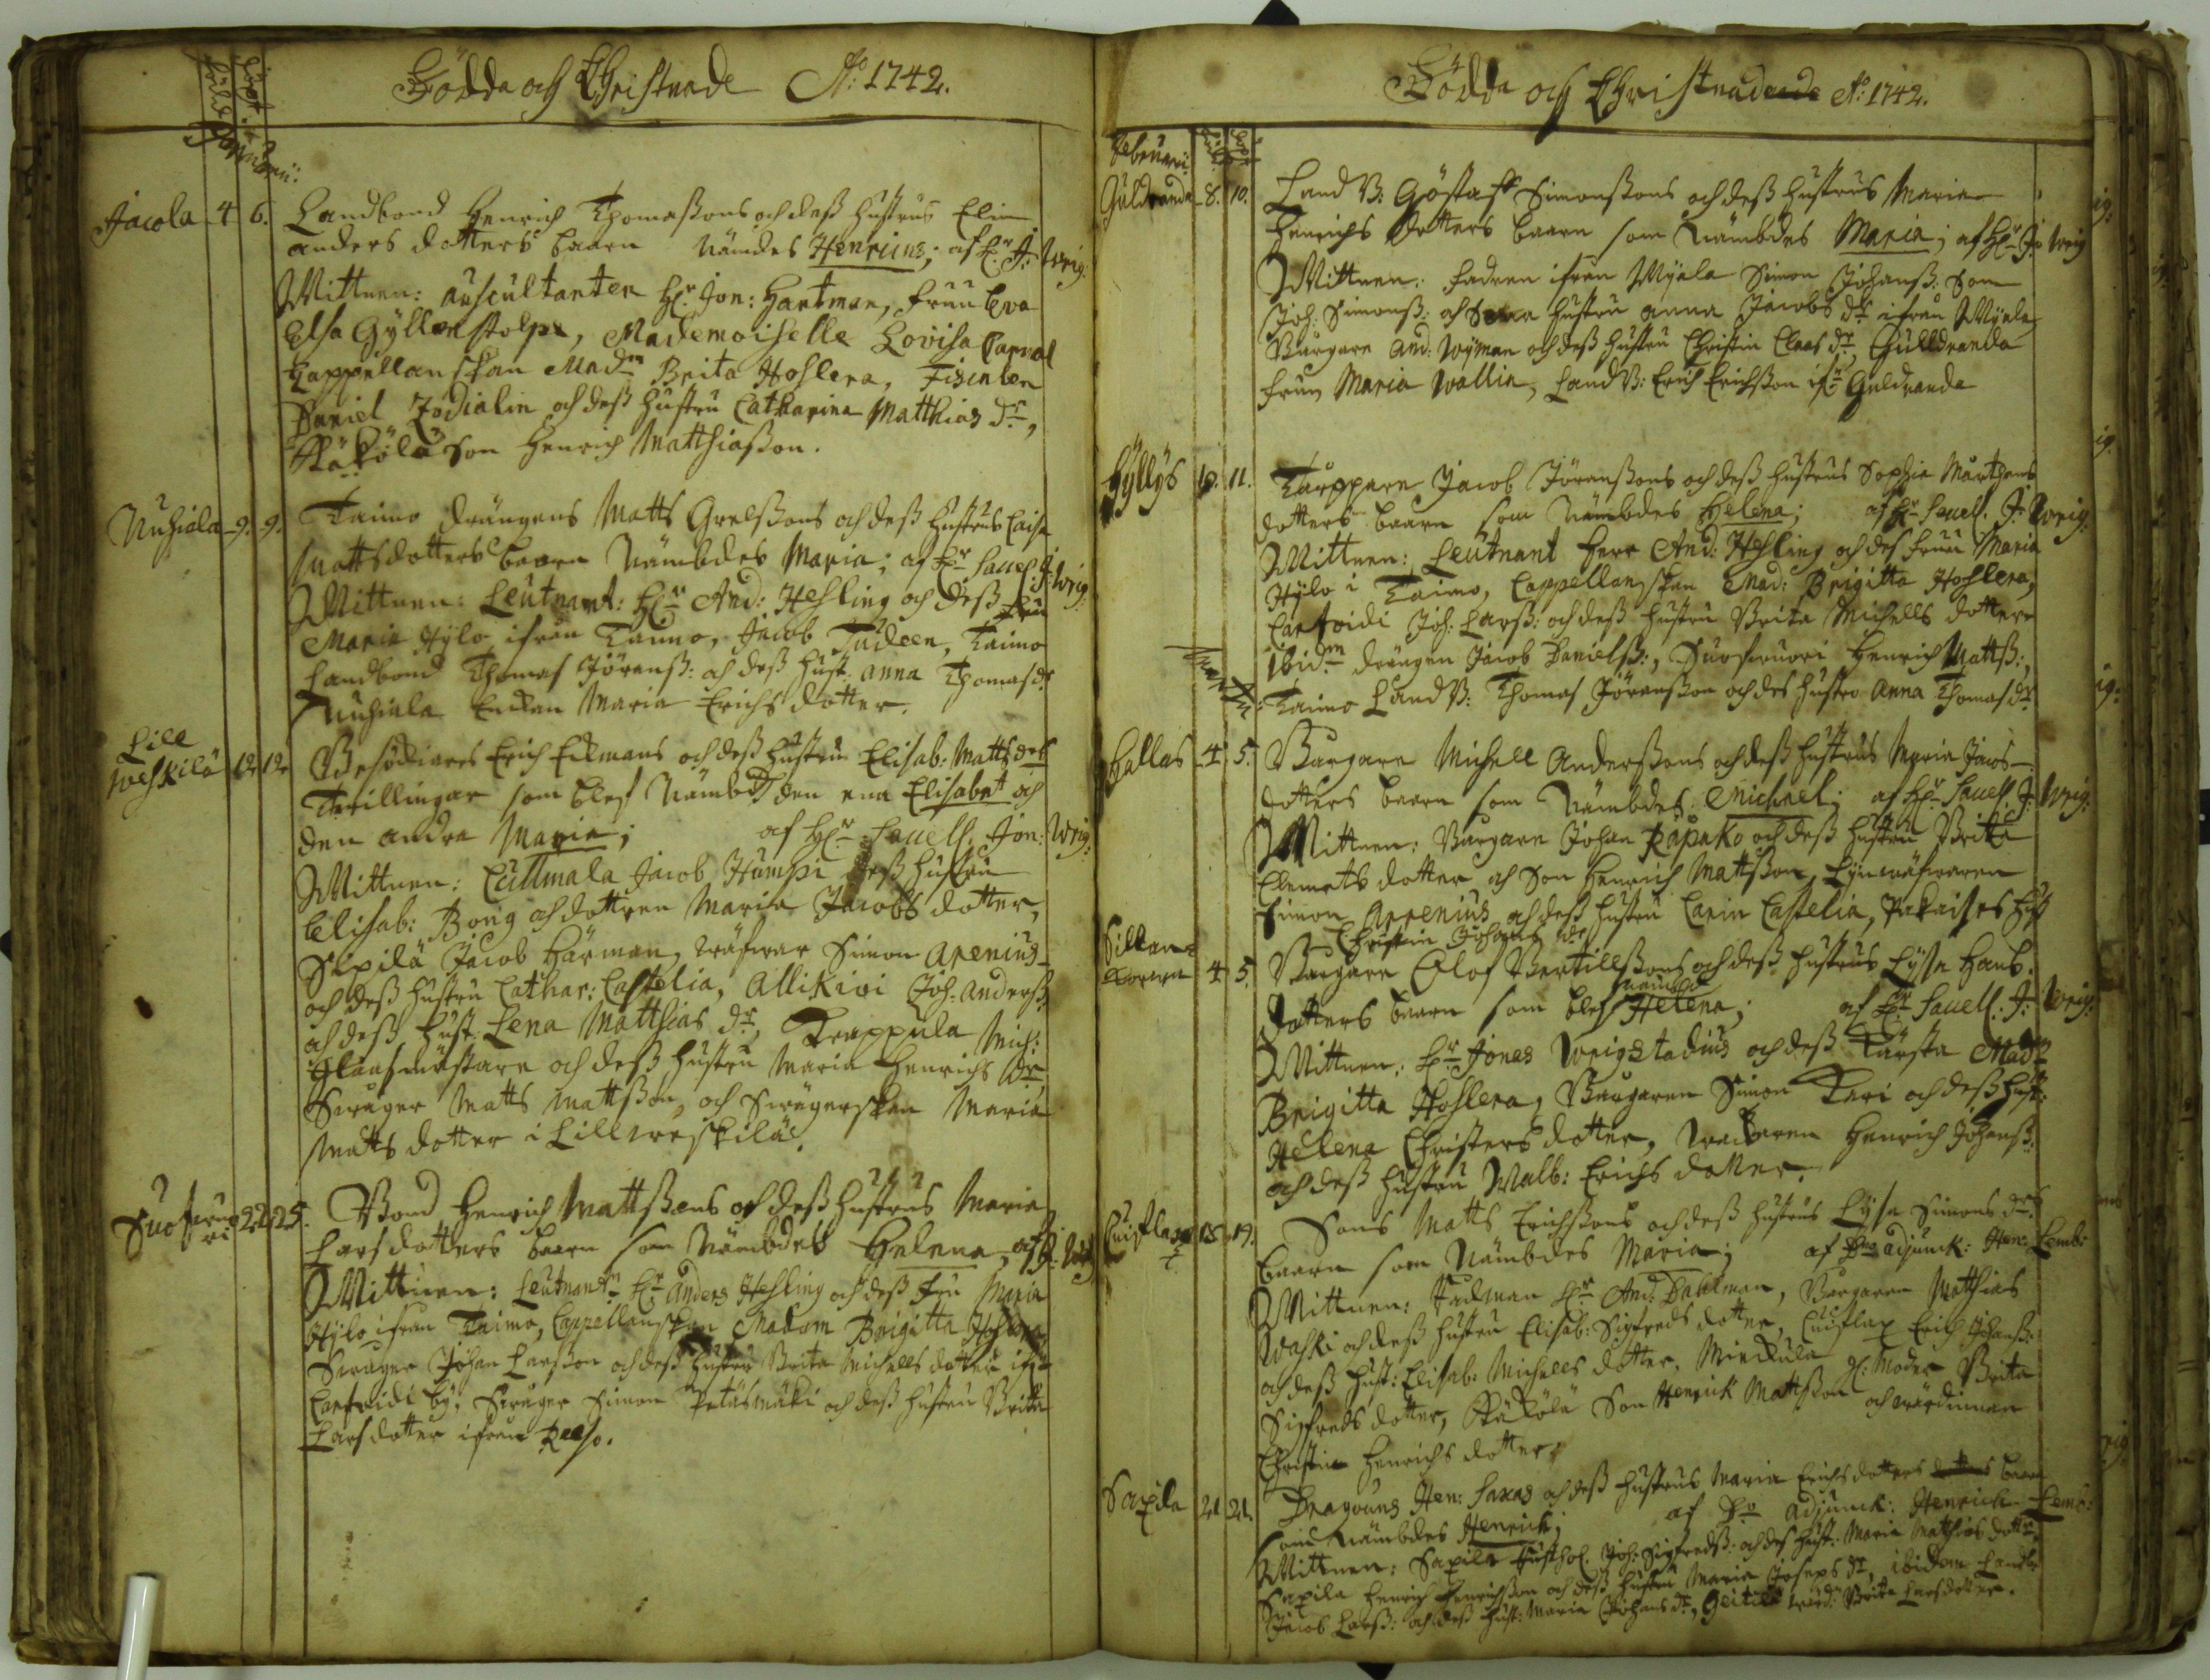 Födda och Christnade Ao: 1742.
född
döpt
Januarii:
Jacola 4 6. Landbond Henrich Thomaßons och deß hustrus Elin
anders dotters baarn nämdes Henricus; af Hr J: Wrig:
Wittnen: auscultanten Hr Jon: Hartman, fruu Eva
Elsa Gyllenstolpe, Mademoiselle Lovisa
Cappellanskan Madm Brita Hoslera,
Daniel Zodialin och deß hustru Catharina Matthias dr,
Räkölä Son Henrich Matthiaßon.
Nuhiala 9. 9. Taimo drängens Matts Grelßons och deß hustrus Caisa
Mattsdotters baarn nämbdes Maria; af Hr Sacell: J: Wrig:
Wittnen: Leutnant: Hr And: Hesling och deß fru
Maria Hylo ifrån Taimo, Jacob Tudeen, Taimo
Landbond Thomas Jöranß: och deß hust: anna Thomas dr
Nuhiala Enckan Maria Erichs dotter.
Lill
Weskilä 12 12 Besökiares Erich Eekmans och deß hustru Elisab: Matts drs
Twillingar som blef nämbd den ena Elisabet och
den andra Maria; af Hr Sacell: Jon: Wrig:
Wittnen: Cullmala Jacob Humpi deß hustru
Elisab: Bong och dottren Maria Jacobs dotter,
Sipilä Jacob Härman, Simon Arenius
och deß hustru Cathar: Castelia, Allikivi Joh: Anderß:
och deß hust: Lena Matthias dr, Trappula Mich:
Glaasmästare och deß hustru Maria Henrichs dr
Swåger Matts Mattßon, och Swågerskan Maria
Matts dotter i Lillweskilä.
Suosiruori 22 25. Bond Henrich Mattßons och deß hustrus Maria
Larsdotters baarn som nämbdes Helena, af J: Wrig
Wittnen: Leutnant Hr Anders Hesling och deß fru Maria
Hylo ifrån Taimo, Cappellanskan Madam Brigitta Hoslera
Swåger Johan Larßon och deß hustru Brita Michells dotter ifrån
Carfvidi by, Swåger Simon Petäsmäki och deß hustru Brita
Larsdotter ifrån Raso.
Födda och Christnadnade Ao: 1742.
Februari:
Guldranda 8. 10. Land B: Göstaf Simonßons och deß hustrus Maria
Henrichs dotters baarn som nämbdes Maria; af Hr Jo Wrig
Wittnen: fadren ifrån Wyala Simon Johanß: Son
Joh: Simonß: och hustru anna Jacobs dr ifrån Wyala
Burgare And: Wyman och deß hustru Christin Claes dr, Gulldranda
fruu Maria Wallin, Land B: Erich Erichßon ifrn Guldranda
Hyllys 10. 11. Torppare Jacob Jöranßons och deß hustrus Sophia Mårthens
dotters baarn som nämbdes Helena; af Hr Sacell. J: Wrig:
Wittnen: Leutnant Herr And: Hesling och des fruu Maria
Hylo i Taimo, Cappellanskan Mad: Brigitta Hoslera,
Carfvidi Joh: Larß: och deß hustru Brita Michells dotter
ibidm drängen Jacob Danielß:, Suosiruori Henrich Mattß:,
Taimo Land B: Thomas Jöranßon och des hustro Anna Thomas dr
Martii:
Hallas 4 5. Burgare Michell Anderßons och deß hustrus Maria Jacos-
dotters baarn som nämbdes Michael; af Hr Sacell J: Wrig:
Wittnen: Burgare Johan Papuko och deß hustru Brita
Clemets dotter och Son Henrich Mattßon,
Simon Arrenius och deß hustru Carin Castelia, Pakaises hust
Christin Johans dr
Sillan- 4 5. Burgare Olof Bertillßons och deß hustrus Lysa Hans
dotters baarn som blef nämbd Helena; af Hr Sacell: J: Wrig:
Wittnen: Hr Jonas Wrigstadius och deß Kärsta Madm
Brigitta Hoslera, Burgaren Simon Kari och deß hust:
Helena Christers dotter, Henrich Johanß:
och deß hustru Walb: Erichs dotter.
18 19. Sons Matts Erichßons och deß hustrus Lysa Simons drs
baarn som nämbdes Maria; af Dno Adjunck: Hen: Lemb:
Wittnen: Rådman Hr And: Dahlman, Burgaren Matthias
Waski och deß hustru Elisab: Sigfreds dotter, Erich Johanß:
och deß hust: Elisab: Michells dotter, Minckula gl: Moder Brita
Sigfreds dotter, Räkölä Son Henrick Mattßon och wärdinnan
Christin Henrichs dotter.
Sapila 21 21. Dragouns Hen: Saxas och deß hustrus Maria Erichsdotters dotters baarn
som nämbdes Henrich; af Dn Adjunck: Henrich Lemb:
Wittnen: Sapila Rusthol. Joh: Sigfredß: och des hust: Maria Matthias dotter,
Sapila Henrich Henrichßon och deß hustru Maria Joseps dr, ibidem Landb:
Jacob Larß: och deß hust: Maria Johans dr, Geitila wärd: Brita Larsdotter.